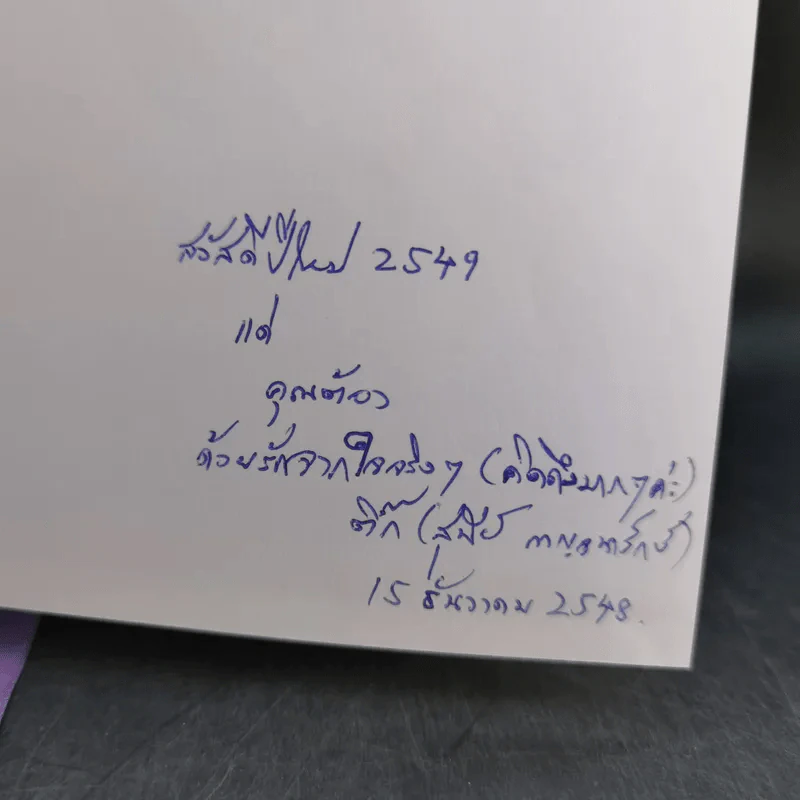 สวัสดีปีใหม่ 2549
แด่
คุณต้อง
ด้วยรักจากใจจริงๆ (คิดถึงมากๆค่ะ)
ติ๊ก (
15 ธันวาคม 2548.